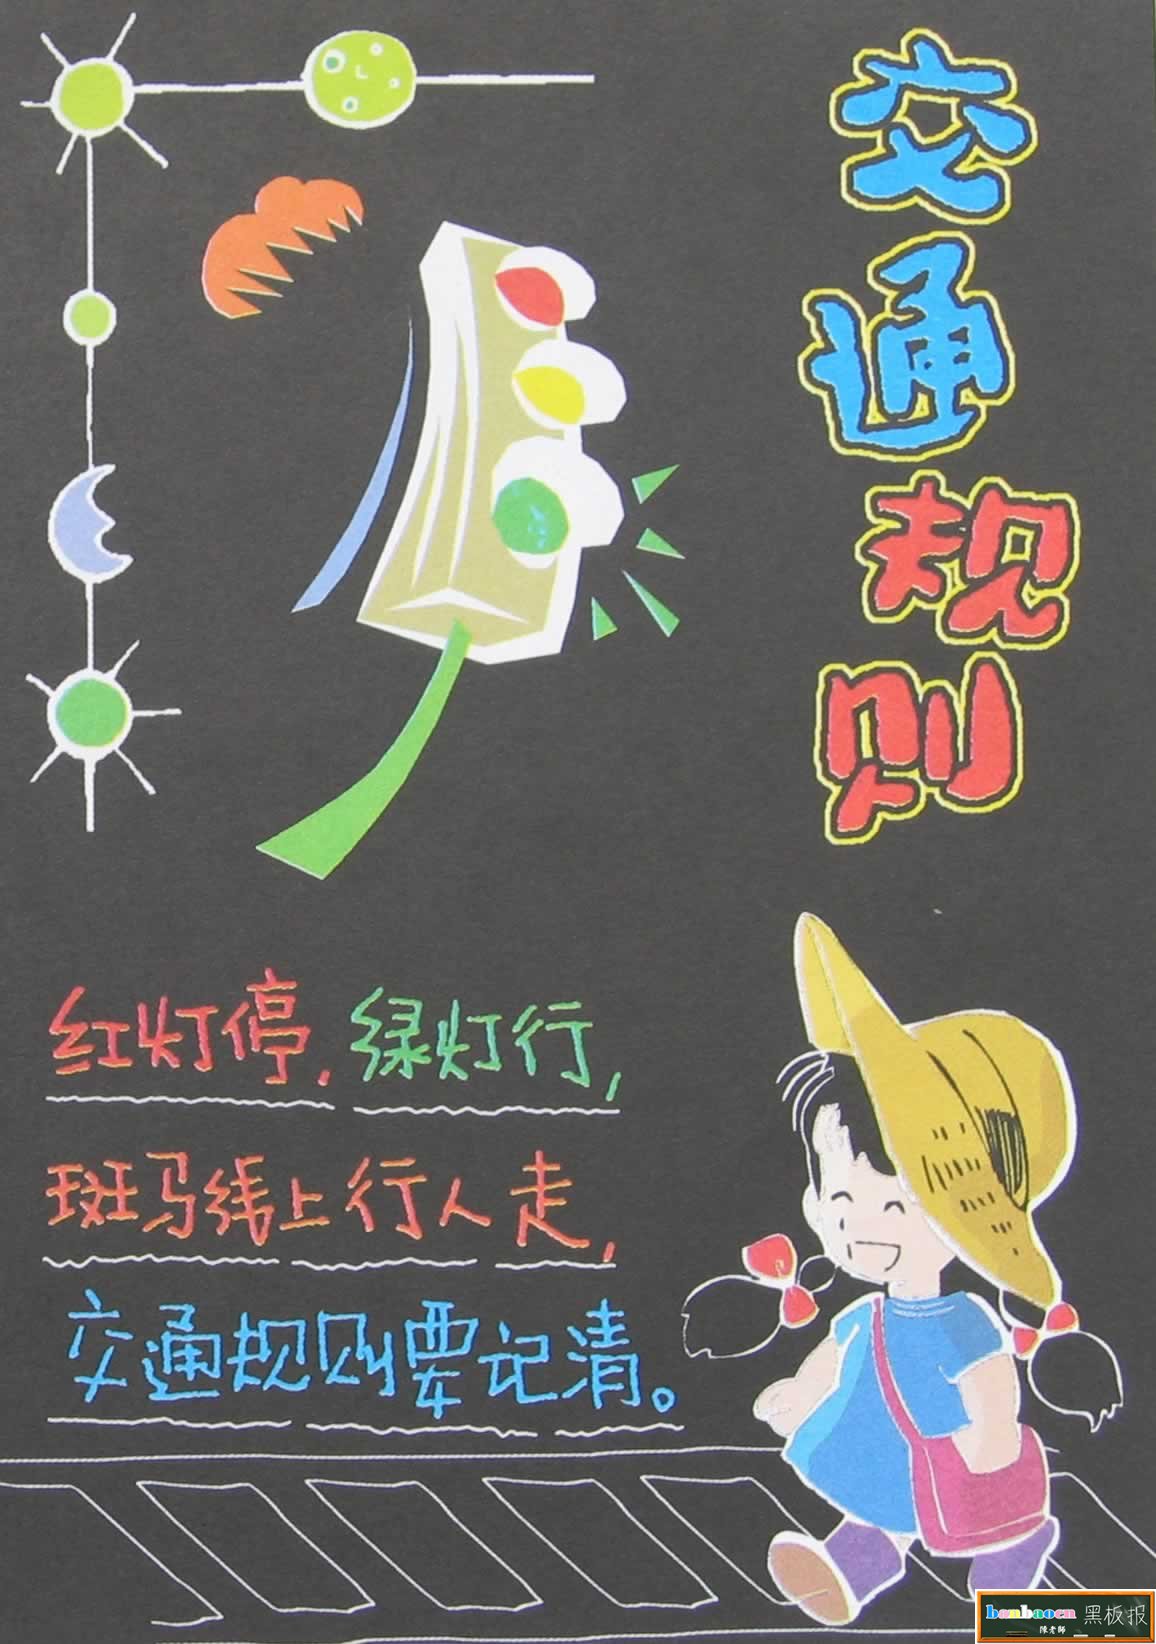 交通规则
红灯停，绿灯行，
斑马线上行人走，
交通规则要记清。
banbaocn 黑板报
陳老師